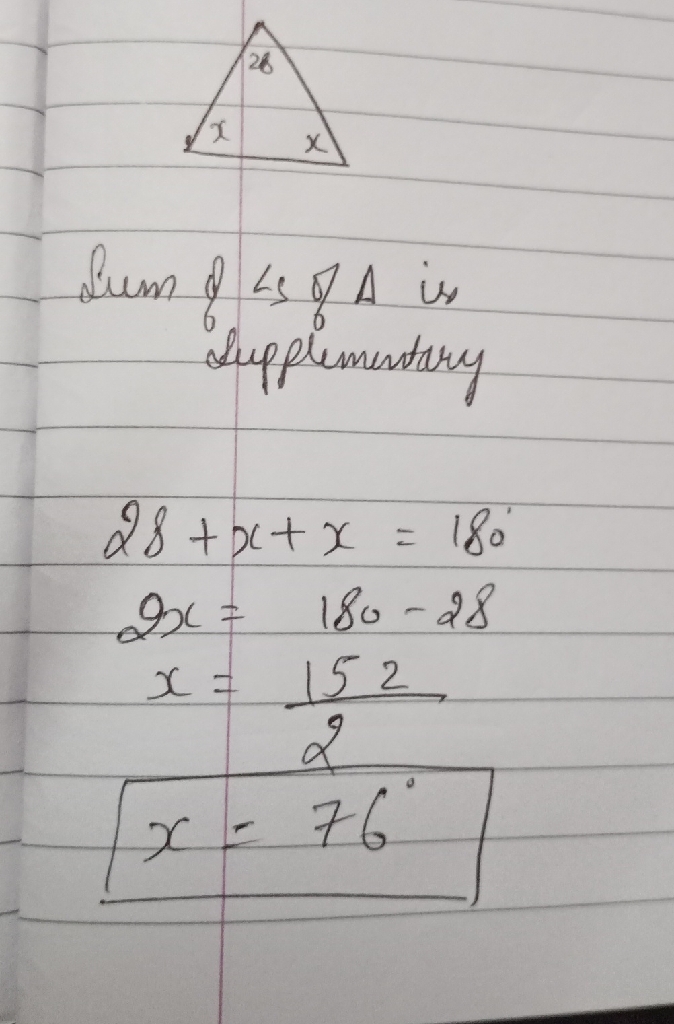 28
x x
Sum of ∠s of Δ is
Supplementary
28 + x + x = 180°
2x = 180 - 28
x = 152
2
x = 76°